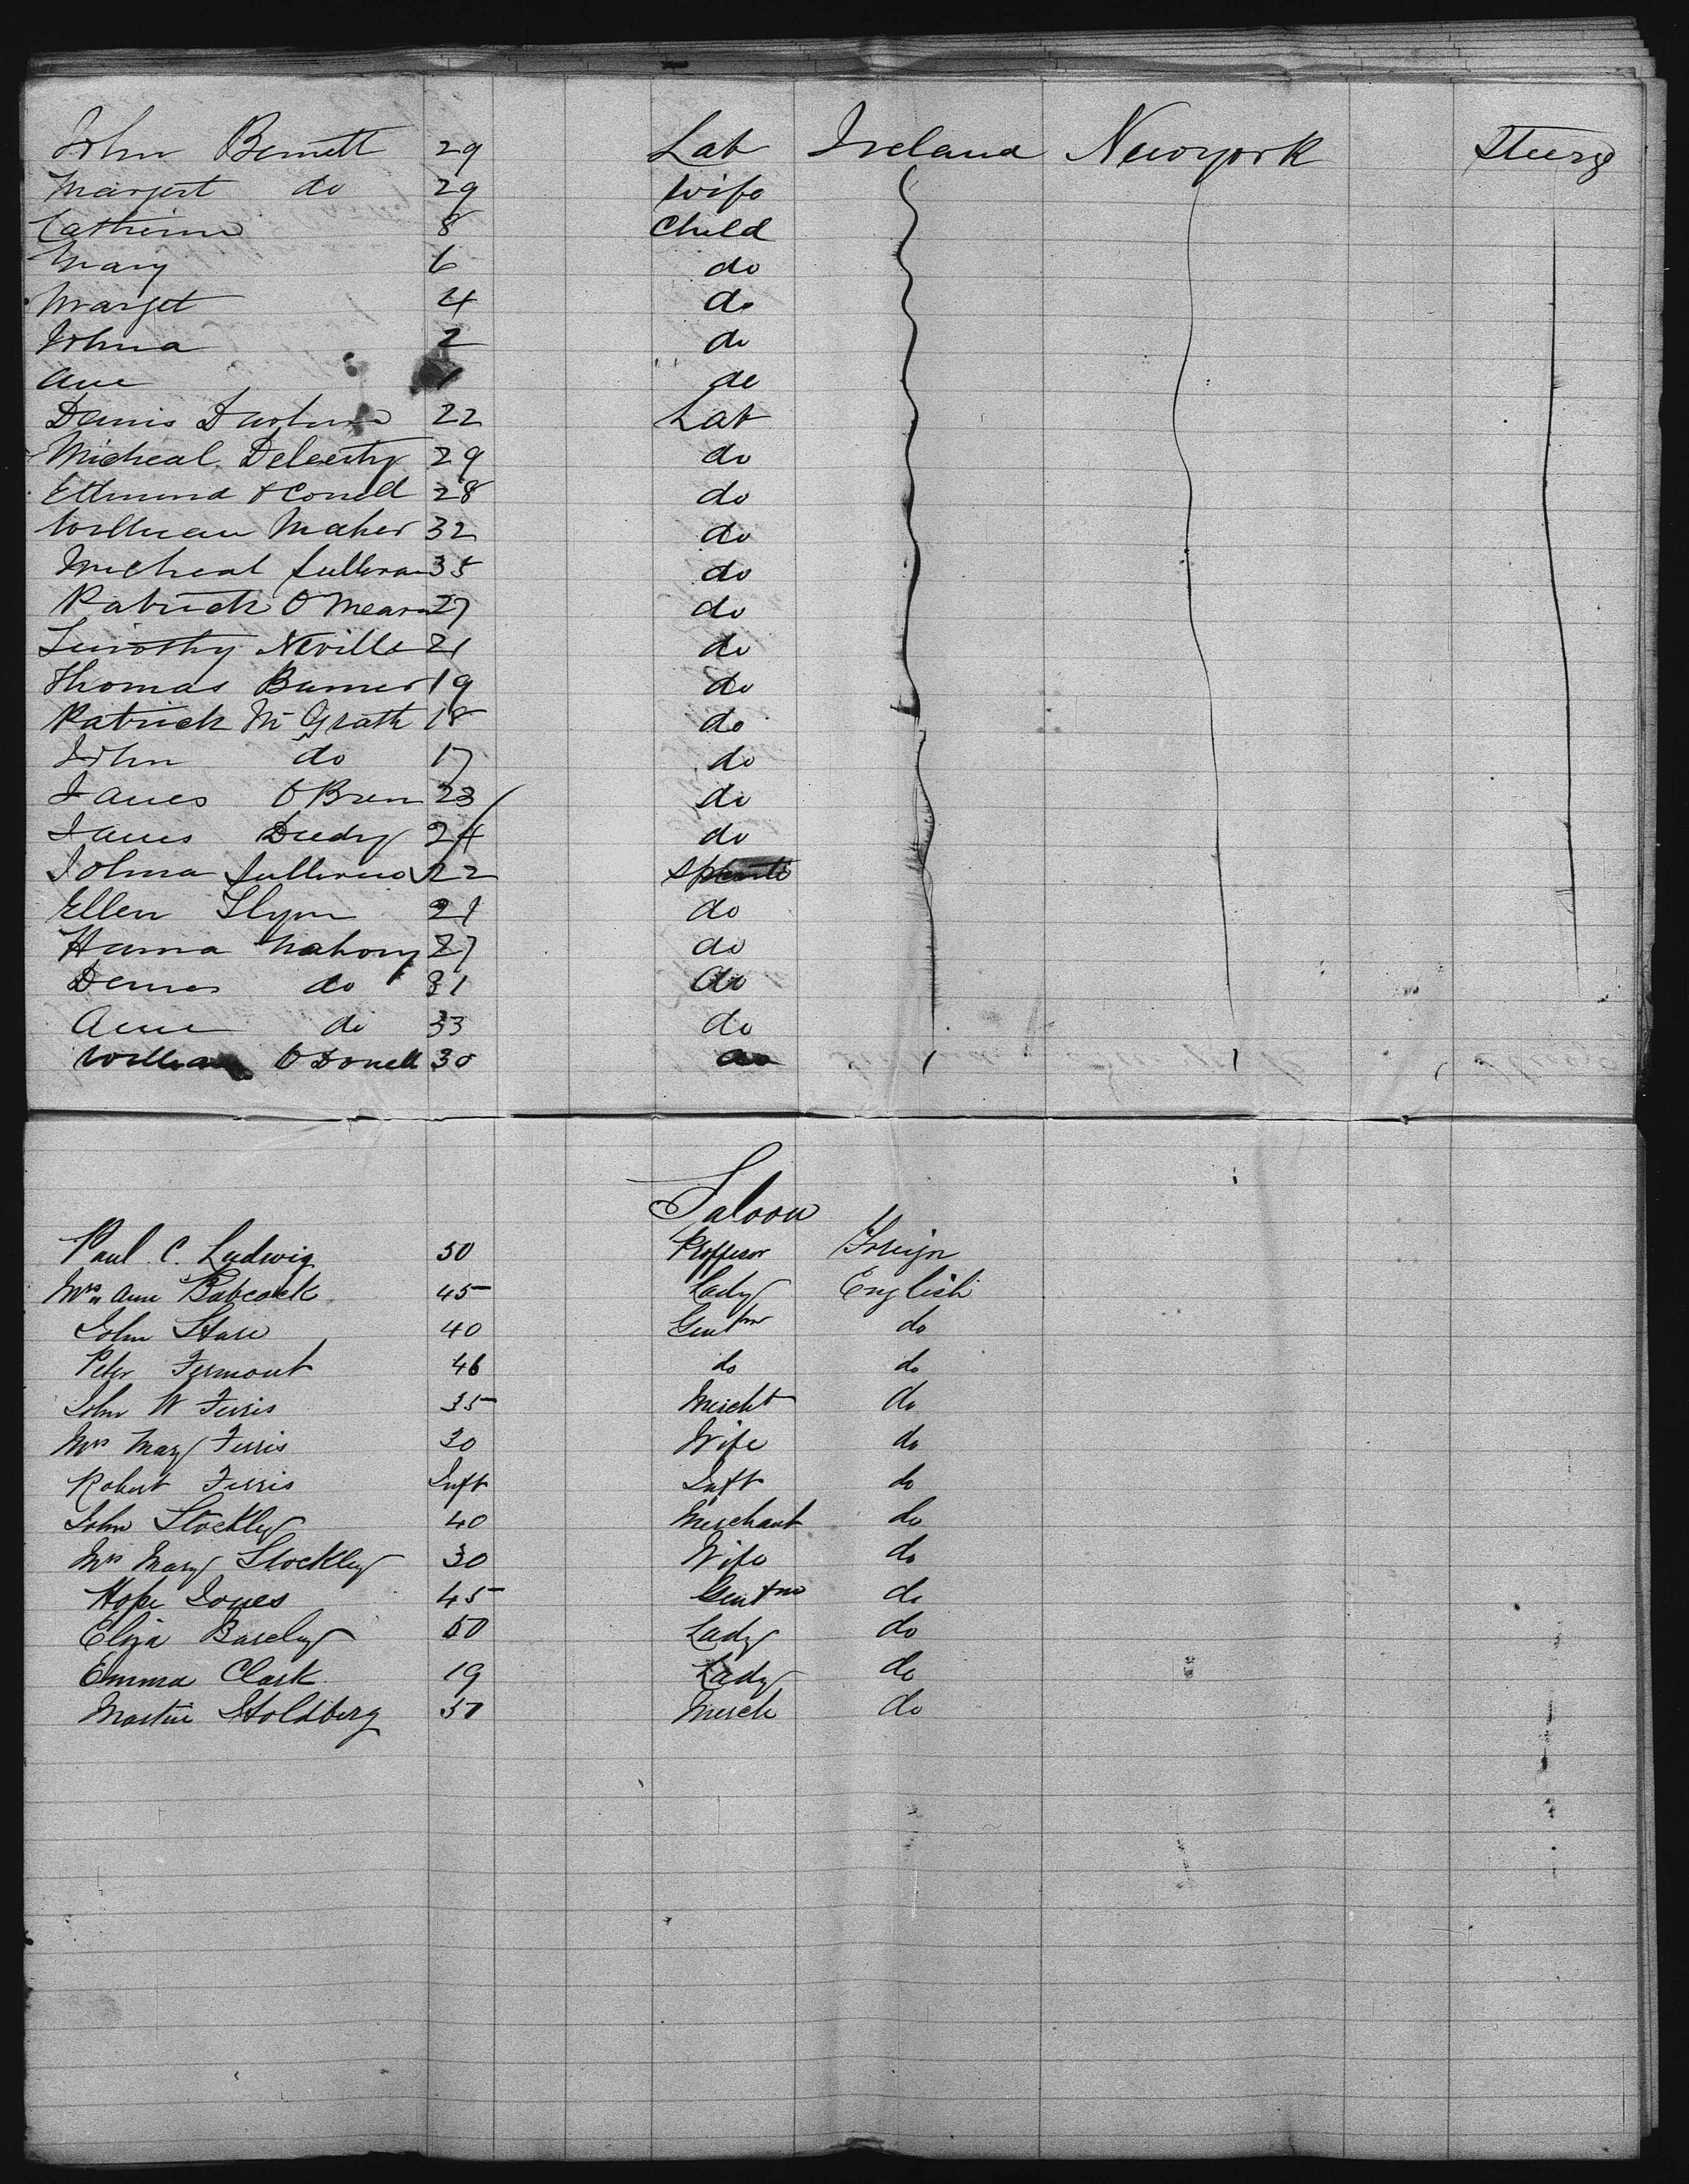 John Bennett 29 Lab Ireland Newyork Steerg
Margert do 29 Wife
Catherine 8 Child
Mary 6 do
Marget 4 do
Johna 2 do
Ane 1 do
Denis 22 Lab
Micheal Delerty 29 do
Edmund O Conell 28 do
William Maher 32 do
Micheal Sullivan 35 do
Patrick O Meara 27 do
Timothy Neville 21 do
Thomas 19 do
Patrick Mc Grath 18 do
John do 17 do
James O Brien 23 do
James 24 do
Johna Sullivan 22
Ellen Flynn 21 do
Hanna Mahony 27 do
do 31 do
Anne do 33 do
William O Donell 30 do
Saloon
Paul C. Ludwig 50 Proffesor Foreign
Mrs Ann Babcock 45 Lady English
John Stare 40 Gentm do
Peter Fermont 46 do do
John W Ferris 35 Mercht do
Mrs Mary Ferris 30 Wife do
Robert Ferris Inft Inft do
John Stockley 40 Merchant do
Mrs Mary Stockley 30 Wife do
Hope Jones 45 Gentm do
Eliza Barcley 50 Lady do
Emma Clark 19 Lady do
Martin Stoldberg 37 Merch do